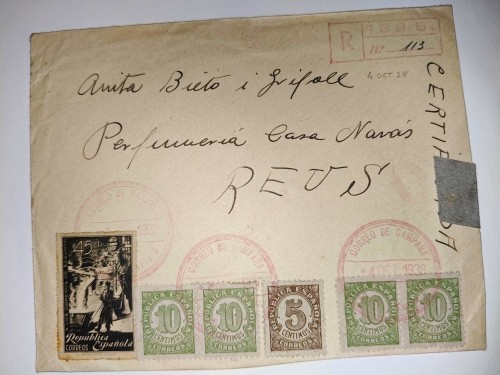 R
Nº 113
4 OCT 38
Anita Bieto i Grifoll
Perfumeria Casa Navás
REUS
CERTIFI
DA
CORREO DE CAMPAÑA
45 cts
República
Española
CORREOS
REPUBLICA ESPAÑOLA
10
CENTIMOS
CORREOS
REPUBLICA ESPAÑOLA
10
CENTIMOS
CORREOS
REPUBLICA ESPAÑOLA
5
CENTIMOS
CORREOS
REPUBLICA ESPAÑOLA
10
CENTIMOS
CORREOS
REPUBLICA ESPAÑOLA
10
CENTIMOS
CORREOS